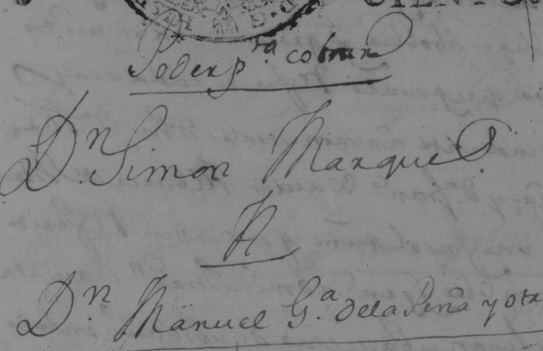 Poder pra cobrar
Dn Simon Marques.
A
Dn Manuel Ga dela Peña y otr